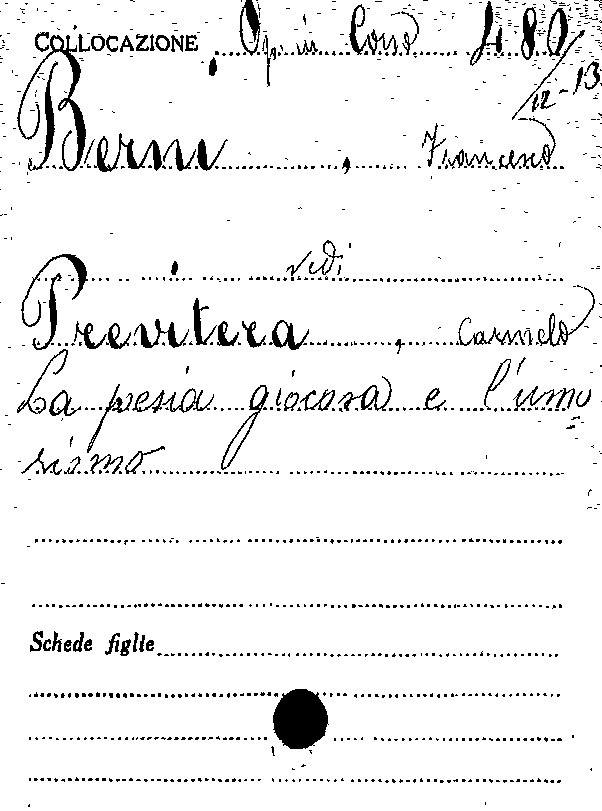 COLLOCAZIONE Op. in Corso 480/12-13
Berni, Francesco
vedi
Previtera, Carmelo
La pesia giocosa e l'umo=
rismo
Schede figlie